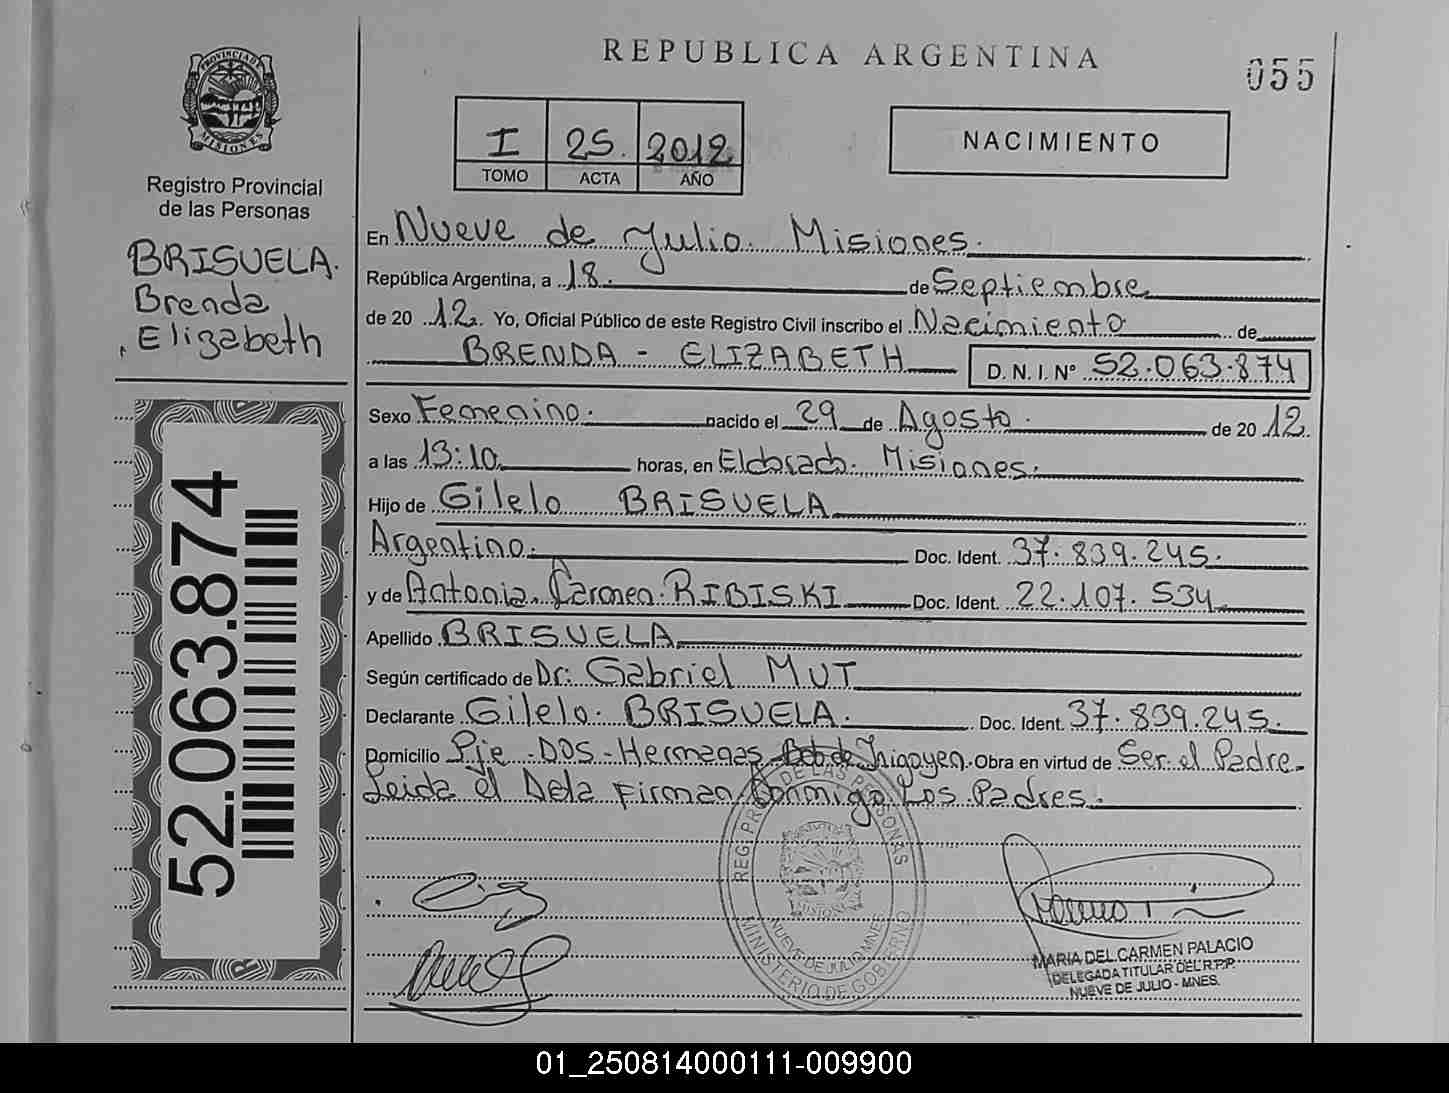 REPUBLICA ARGENTINA
055
PROVINCIA DE
MISIONES
Registro Provincial
de las Personas
BRISUELA.
Brenda
Elizabeth
I 25. 2012
TOMO ACTA AÑO
NACIMIENTO
En Nueve de Julio. Misiones.
República Argentina, a 18. de Septiembre
de 20 12. Yo, Oficial Público de este Registro Civil inscribo el Nacimiento de
BRENDA - ELIZABETH D. N. I. Nº 52.063.874
Sexo Femenino. nacido el 29 de Agosto. de 20 12.
a las 13:10 horas, en Eldorado. Misiones.
Hijo de Gilelo BRISUELA
Argentino. Doc. Ident. 37.839.245.
y de Antonia. Carmen. RIBISKI Doc. Ident. 22.107.534
Apellido BRISUELA
Según certificado de Dr: Gabriel MUT
Declarante Gilelo. BRISUELA. Doc. Ident. 37.839.245.
Domicilio Pje DOS Hermanas Irigoyen. Obra en virtud de Ser el Padre.
Leida el Acta Firman Conmigo Los Padres.
52.063.874
REG. PROV. DE LAS PERSONAS
MISIONES
NUEVE DE JULIO MNES.
MINISTERIO DE GOBIERNO
MARIA DEL CARMEN PALACIO
DELEGADA TITULAR DEL R.P.P.
NUEVE DE JULIO - MNES.
01_250814000111-009900